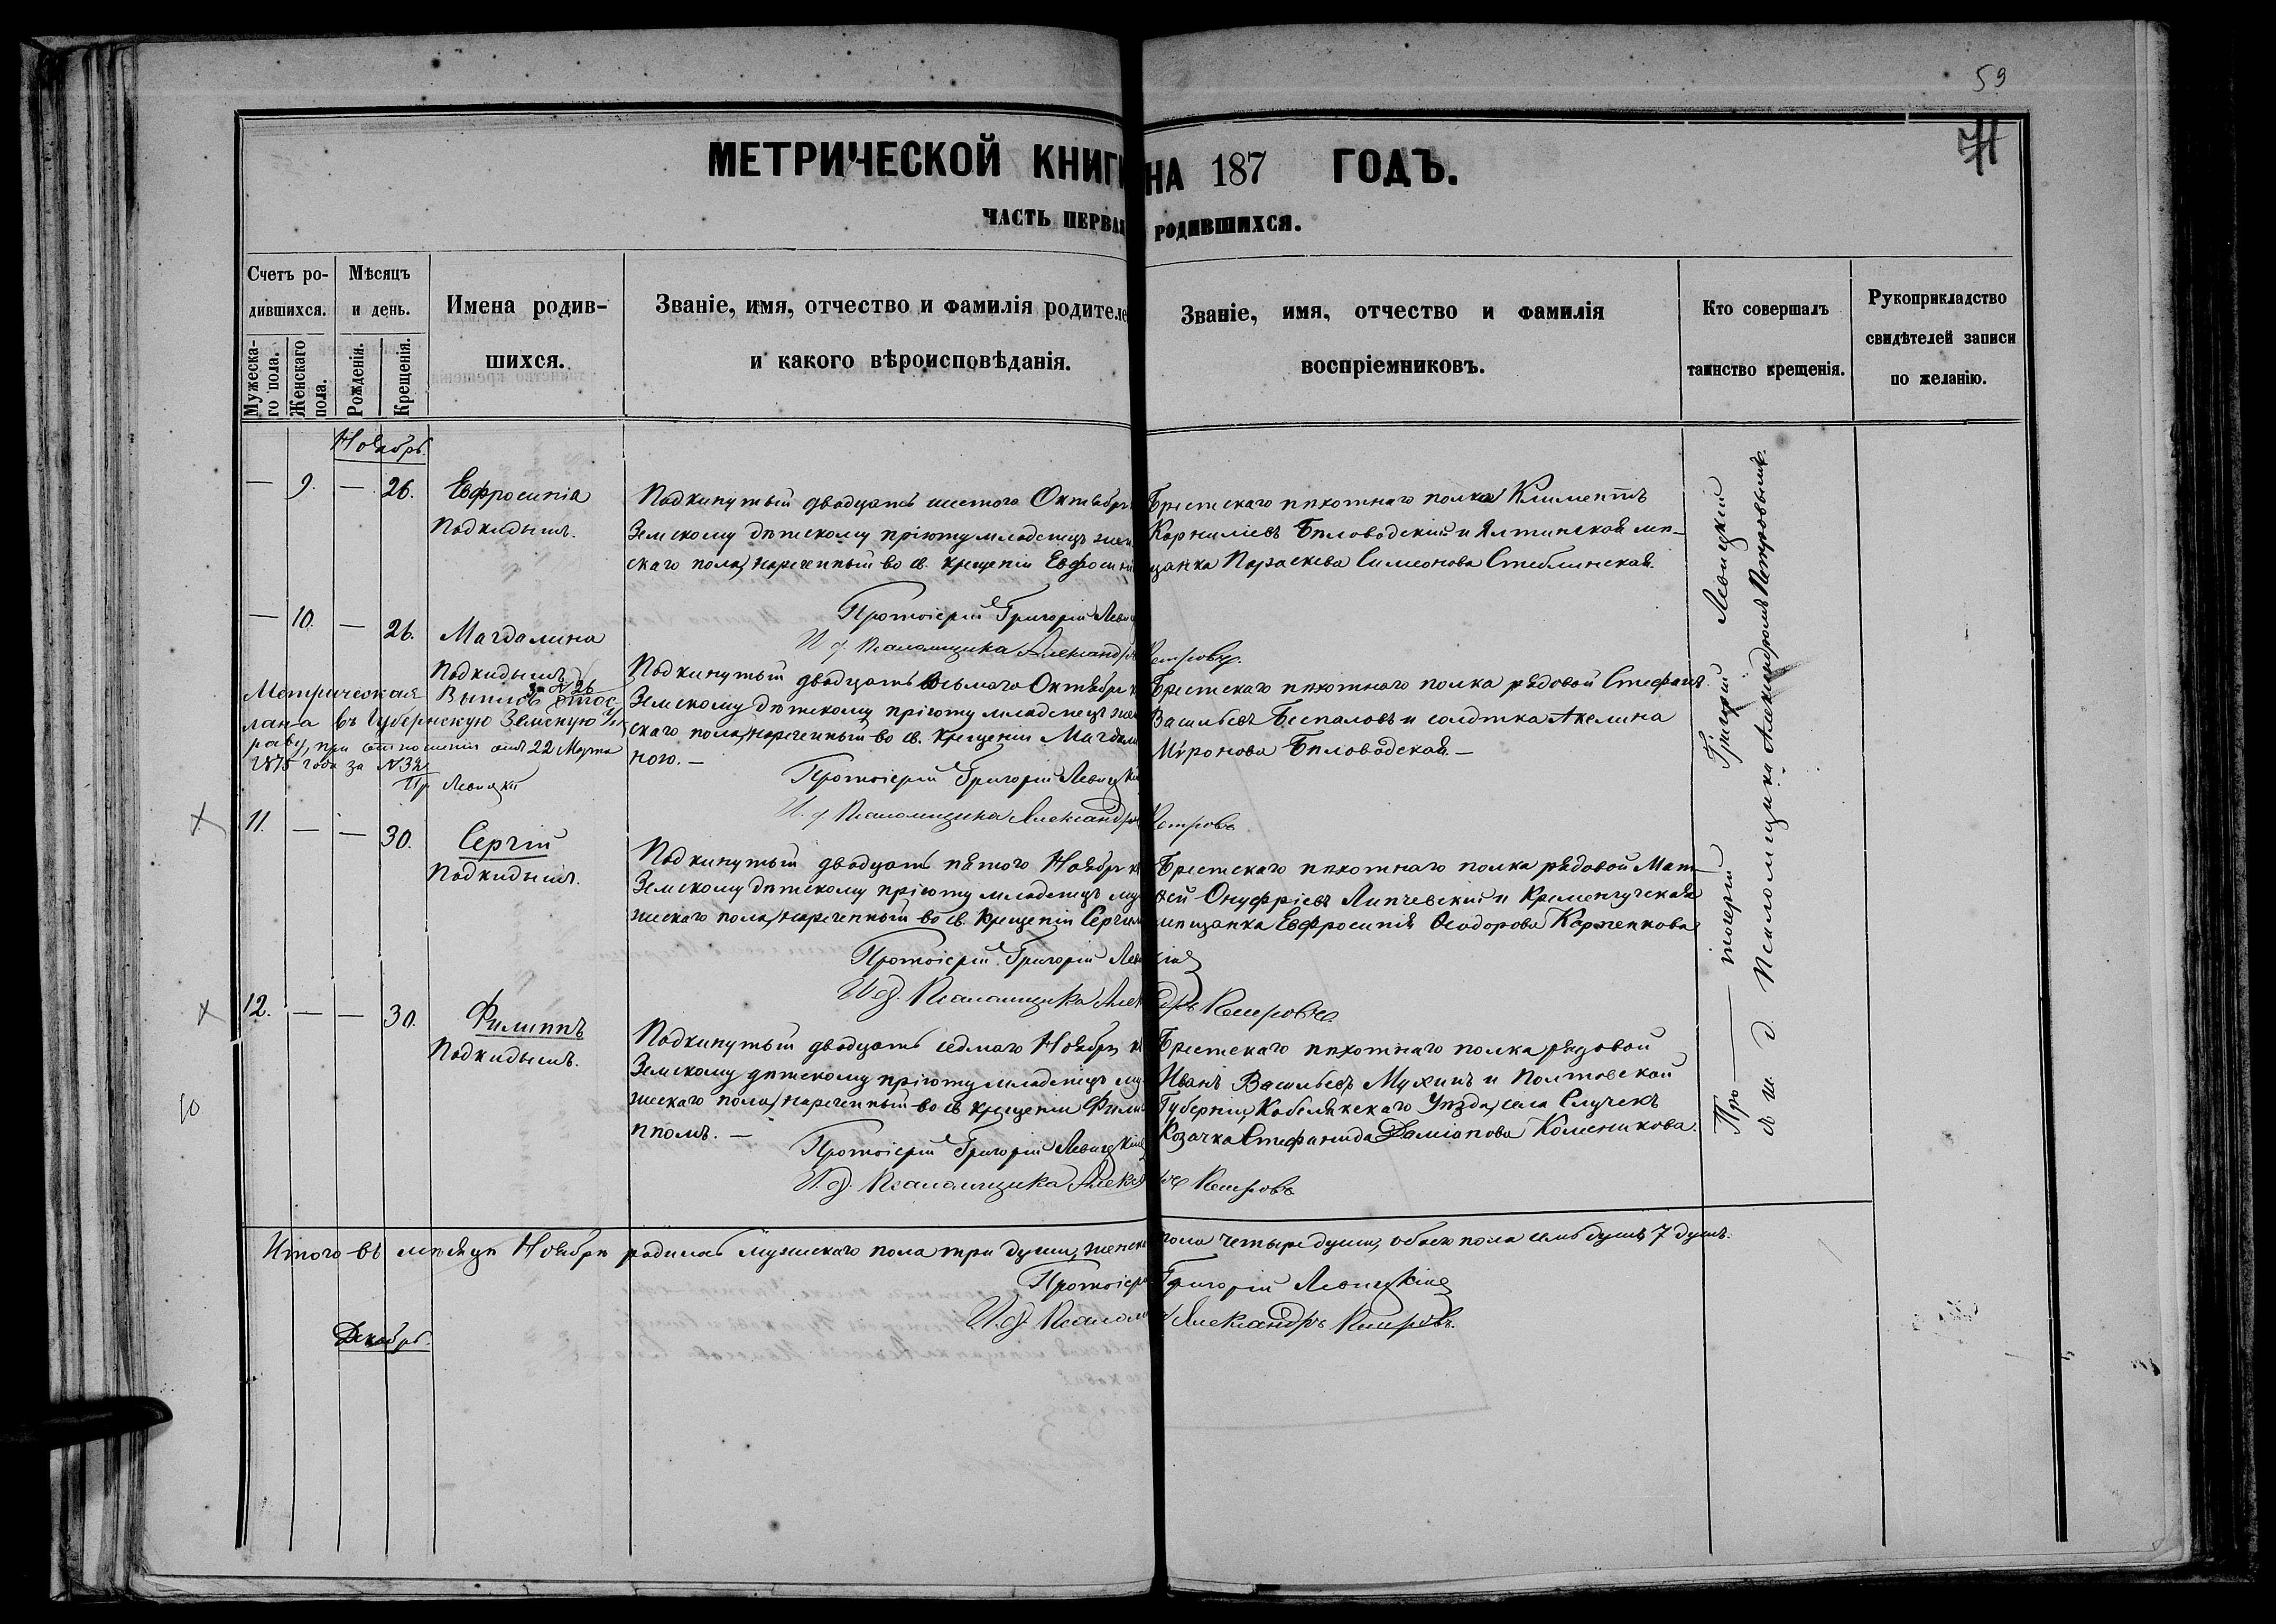 59
71
МЕТРИЧЕСКОЙ КНИГИ НА 187 ГОДЪ.
ЧАСТЬ ПЕРВАЯ РОДИВШИХСЯ.
Счетъ родившихся.
Мужескаго пола.
Женскаго пола.
Мѣсяцъ и день.
Рожденія.
Крещенія.
Имена родившихся.
Званіе, имя, отчество и фамилія родителе
и какого вѣроисповѣданія.
Званіе, имя, отчество и фамилія
воспріемниковъ.
Кто совершалъ
таинство крещенія.
Рукоприкладство
свидѣтелей записи
по желанію.
Ноябрь.
— 9. — 26. Евфросинія
Подкидышъ.
Подкинутый двадцать шестого Октября
Земскому дѣтскому пріюту младенецъ жен
скаго пола, нареченный во св. крещеніи Евфосині
Протоіерей Григорій Левиц
И. д. Псаломщика Александръ Петровъ.
Брестскаго пѣхотнаго полка Климентъ
Корниліевъ Бѣловодскій и Ялтинская мѣ-
щанка Параскева Симеонова Стеблинская.
— 10. — 26. Магдалина
Подкидышъ
Подкинутый двадцать восьмаго Октября к
Земскому дѣтскому пріюту младенецъ жен
скаго пола, нареченный во св. крещеніи Магдали
ною. —
Протоіерей Григорій Левицкі
И. д. Псаломщика Александръ Петровъ
Брестскаго пѣхотнаго полка рядовой Стефанъ
Васильевъ Беспаловъ и солдтка Акелина
Миронова Бѣловодская. —
Метрическая Выпись за № 26 отос-
лана въ Губернскую Земскую Уп
раву, при отношеніи отъ 22 Марта
1875 года за № 32
Пр. Левицкій
11. — — 30. Сергій
Подкидышъ.
Подкинутый двадцать пятого Ноября к
Земскому дѣтскому пріюту младенецъ му
жескаго пола, нареченный во св. крещеніи Сергіемъ
Протоіерей Григорій Левицкій
И. д. Псаломщика Александръ Петровъ.
Брестскаго пѣхотнаго полка рядовой Мат-
ѳей Онуфріевъ Липчевскій и Кременчугская
мѣщанка Евфросинія Ѳеодорова Карпенкова
12. — — 30. Филиппъ
Подкидышъ.
Подкинутый двадцать седмаго Ноября к
Земскому дѣтскому пріюту младенецъ му-
жескаго пола, нареченный во св крещеніи Фили
ппомъ. —
Протоіерей Григорій Левицкій
И. д. Псаломщика Александръ Петровъ
Брестскаго пѣхотнаго полка рядовой
Иванъ Васильевъ Мухинъ и Полтовской
Губерніи, Кобелякскаго Уѣзда, села Случекъ
Козачка Стефанида Даміанова Колесникова.
Протоіерей Григорій Левицкій
и. д. Псаломщика Александромъ Петровымъ.
Итого въ мѣсяцѣ Ноябрѣ родилось мужескаго пола три души, женск пола четыре души, обоего пола семь душъ 7 душъ.
Протоіерей Григорій Левицкій
И. д. Псалом Александръ Петровъ.
Декабрь.